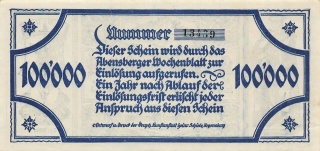 Nummer 13479
Dieser Schein wird durch das
Abensberger Wochenblatt zur
Einlösung aufgerufen.
Ein Jahr nach Ablauf der
Einlösungsfrist erlischt jeder
Anspruch aus diesem Schein
100'000
100'000
Entwurf u. Druck der Graph. Kunstanstalt Heinr. Schiele, Regensburg